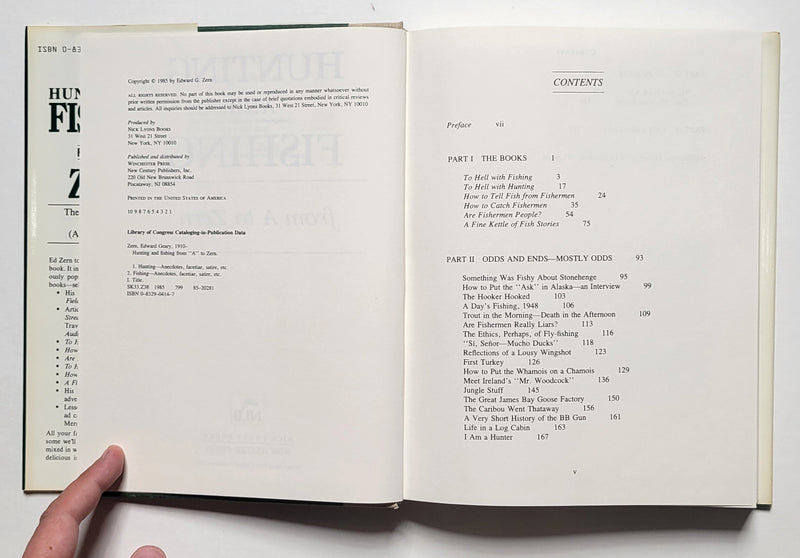 ISBN 0-83
HUN
FIS
Z
The
(A
Ed Zern to
book. It in
ously pop
books—se
• His
Field
• Artic
Stree
Trav
Audu
• To H
• How
• Are
• To H
• How
• A Fi
• His
adve
• Lesso
ad c
Merc
All your fa
some we'll
mixed in w
delicious is
Copyright © 1985 by Edward G. Zern
ALL RIGHTS RESERVED. No part of this book may be used or reproduced in any manner whatsoever without
prior written permission from the publisher except in the case of brief quotations embodied in critical reviews
and articles. All inquiries should be addressed to Nick Lyons Books, 31 West 21 Street, New York, NY 10010
Produced by
NICK LYONS BOOKS
31 West 21 Street
New York, NY 10010
Published and distributed by
WINCHESTER PRESS
New Century Publishers, Inc.
220 Old New Brunswick Road
Piscataway, NJ 08854
PRINTED IN THE UNITED STATES OF AMERICA
10 9 8 7 6 5 4 3 2 1
Library of Congress Cataloging-in-Publication Data
Zern, Edward Geary, 1910–
Hunting and fishing from "A" to Zern.
1. Hunting—Anecdotes, facetiae, satire, etc.
2. Fishing—Anecdotes, facetiae, satire, etc.
I. Title.
SK33.Z38 1985 799 85-20281
ISBN 0-8329-0414-7
CONTENTS
Preface vii
PART I THE BOOKS 1
To Hell with Fishing 3
To Hell with Hunting 17
How to Tell Fish from Fishermen 24
How to Catch Fishermen 35
Are Fishermen People? 54
A Fine Kettle of Fish Stories 75
PART II ODDS AND ENDS—MOSTLY ODDS 93
Something Was Fishy About Stonehenge 95
How to Put the "Ask" in Alaska—an Interview 99
The Hooker Hooked 103
A Day's Fishing, 1948 106
Trout in the Morning—Death in the Afternoon 109
Are Fishermen Really Liars? 113
The Ethics, Perhaps, of Fly-fishing 116
"Sí, Señor—Mucho Ducks" 118
Reflections of a Lousy Wingshot 123
First Turkey 126
How to Put the Whamois on a Chamois 129
Meet Ireland's "Mr. Woodcock" 136
Jungle Stuff 145
The Great James Bay Goose Factory 150
The Caribou Went Thataway 156
A Very Short History of the BB Gun 161
Life in a Log Cabin 163
I Am a Hunter 167
v